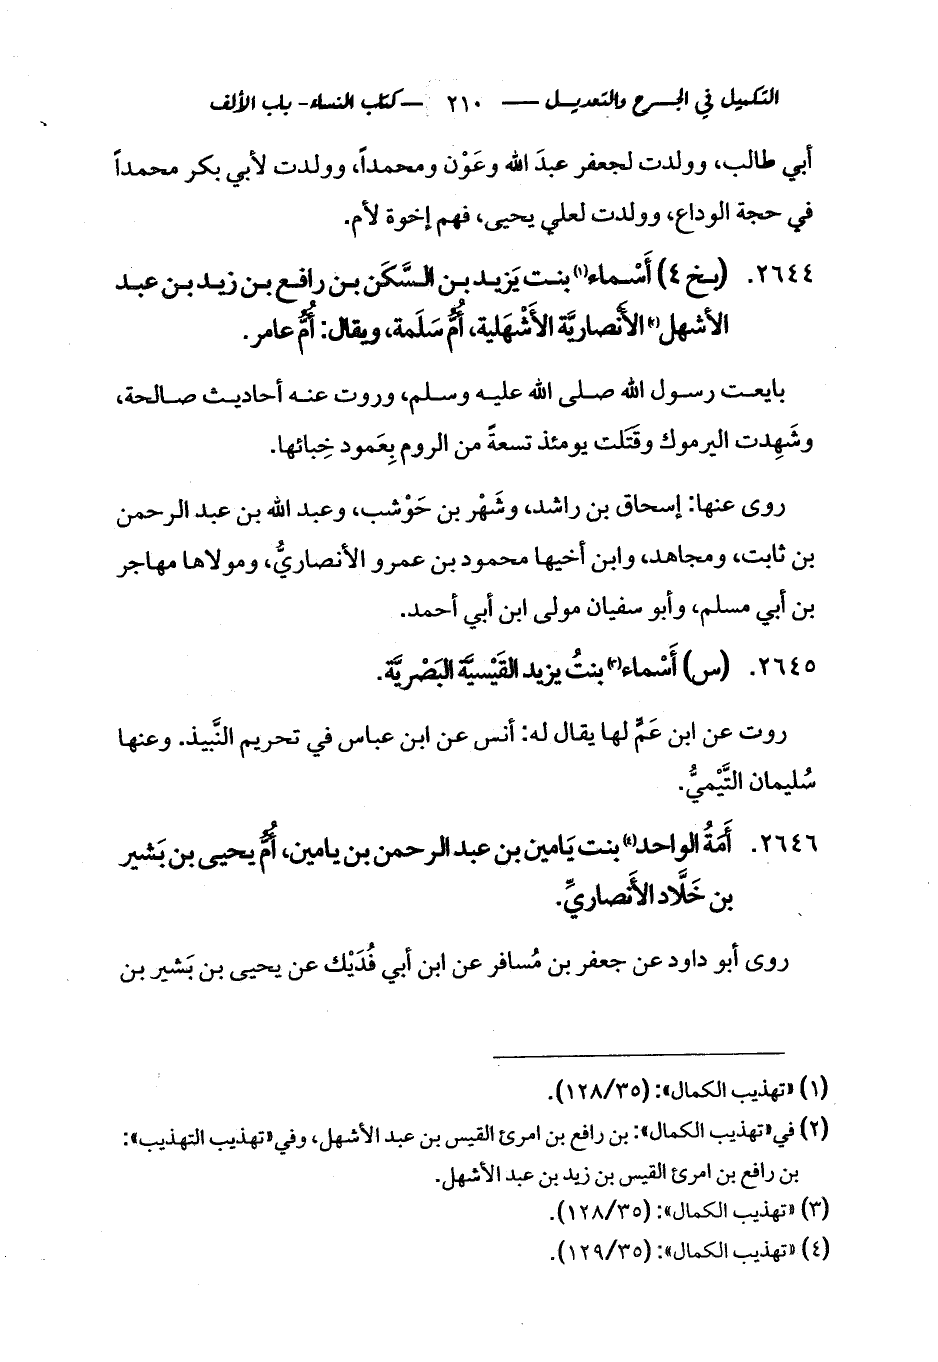 التكميل في الجرح والتعديل — ٢١٠ — كتاب النساء - باب الألف
أبي طالب، وولدت لجعفر عبدَ الله وعَوْن ومحمداً، وولدت لأبي بكر محمداً
في حجة الوداع، وولدت لعلي يحيى، فهم إخوة لأم.
٢٦٤٤. (بخ ٤) أَسْماء(١) بنت يَزيد بن السَّكَن بن رافع بن زيد بن عبد
الأشهل(٢) الأَنْصاريَّة الأَشْهَلية، أُمُّ سَلَمة، ويقال: أُمُّ عامر.
بايعت رسول الله صلى الله عليه وسلم، وروت عنه أحاديث صالحة،
وشَهِدت اليرموك وقَتَلت يومئذ تسعةً من الروم بِعَمود خِبائها.
روى عنها: إسحاق بن راشد، وشَهْر بن حَوْشب، وعبد الله بن عبد الرحمن
بن ثابت، ومجاهد، وابن أخيها محمود بن عمرو الأنصاريُّ، ومولاها مهاجر
بن أبي مسلم، وأبو سفيان مولى ابن أبي أحمد.
٢٦٤٥. (س) أَسْماء(٣) بنتُ يزيد القَيْسيَّة البَصْريَّة.
روت عن ابن عَمٍّ لها يقال له: أنس عن ابن عباس في تحريم النَّبيذ. وعنها
سُليمان التَّيْميُّ.
٢٦٤٦. أَمَةُ الواحد(٤) بنت يَامين بن عبد الرحمن بن يامين، أُمُّ يحيى بن بَشير
بن خَلَّاد الأَنْصاريِّ.
روى أبو داود عن جعفر بن مُسافر عن ابن أبي فُدَيْك عن يحيى بن بَشير بن
(١) «تهذيب الكمال»: (١٢٨/٣٥).
(٢) في «تهذيب الكمال»: بن رافع بن امرئ القيس بن عبد الأشهل، وفي «تهذيب التهذيب»:
بن رافع بن امرئ القيس بن زيد بن عبد الأشهل.
(٣) «تهذيب الكمال»: (١٢٨/٣٥).
(٤) «تهذيب الكمال»: (١٢٩/٣٥).